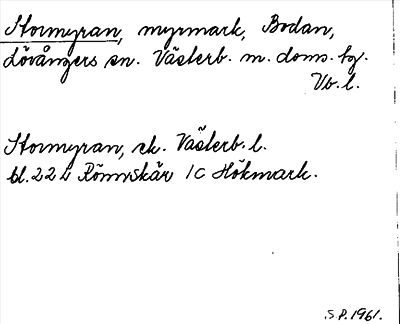 Stormyran, myrmark, Bodan,
Lövångers sn. Västerb. m. doms. fg.
Vb. l.
Stormyran, sk. Västerb. l.
bl. 22 L Rönnskär 1 C Hökmark.
S.P. 1961.